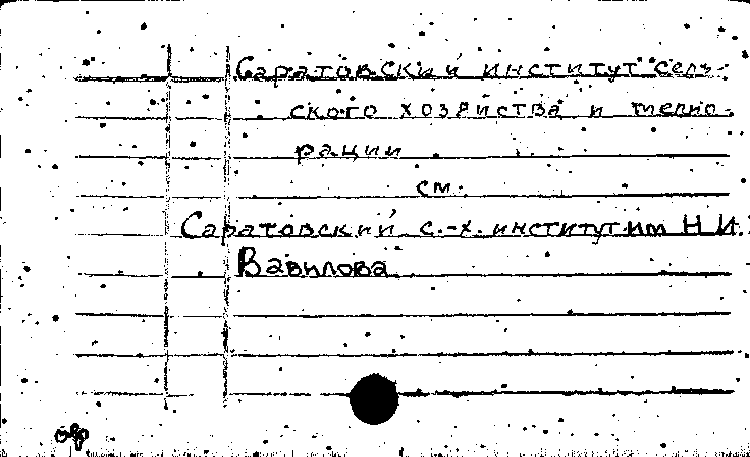 Саратовский институт сель-
ского хозяйства и мелио-
рации
см.
Саратовский с.-х. институт им Н.И.
Вавилова